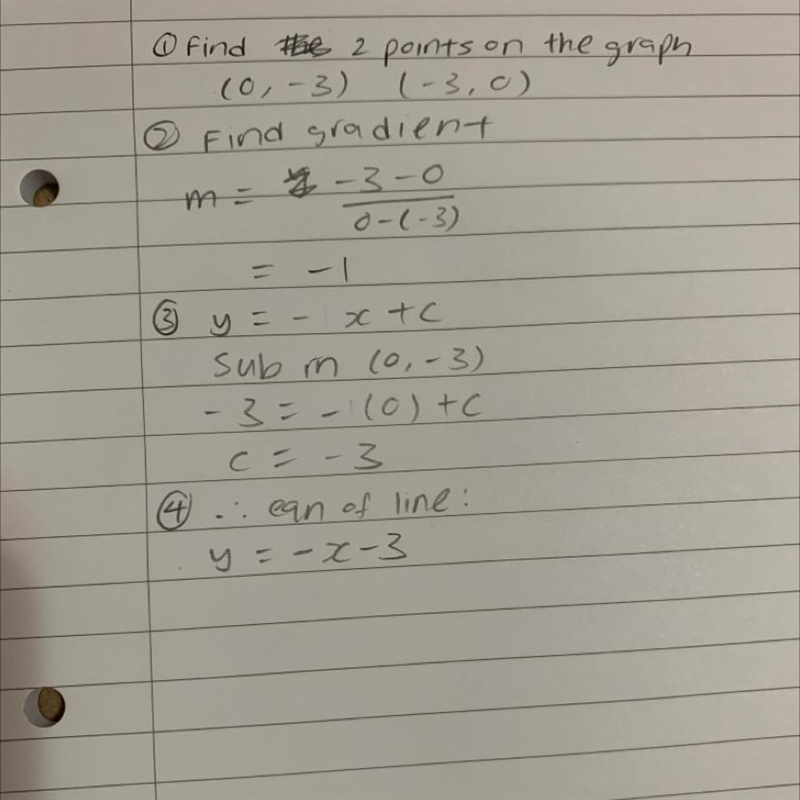 ① Find 2 points on the graph
(0, -3) (-3, 0)
② Find gradient
m = -3-0
0-(-3)
= -1
③ y = - x + c
Sub in (0, -3)
-3 = -1(0) + c
c = -3
④ ∴ eqn of line:
y = -x-3